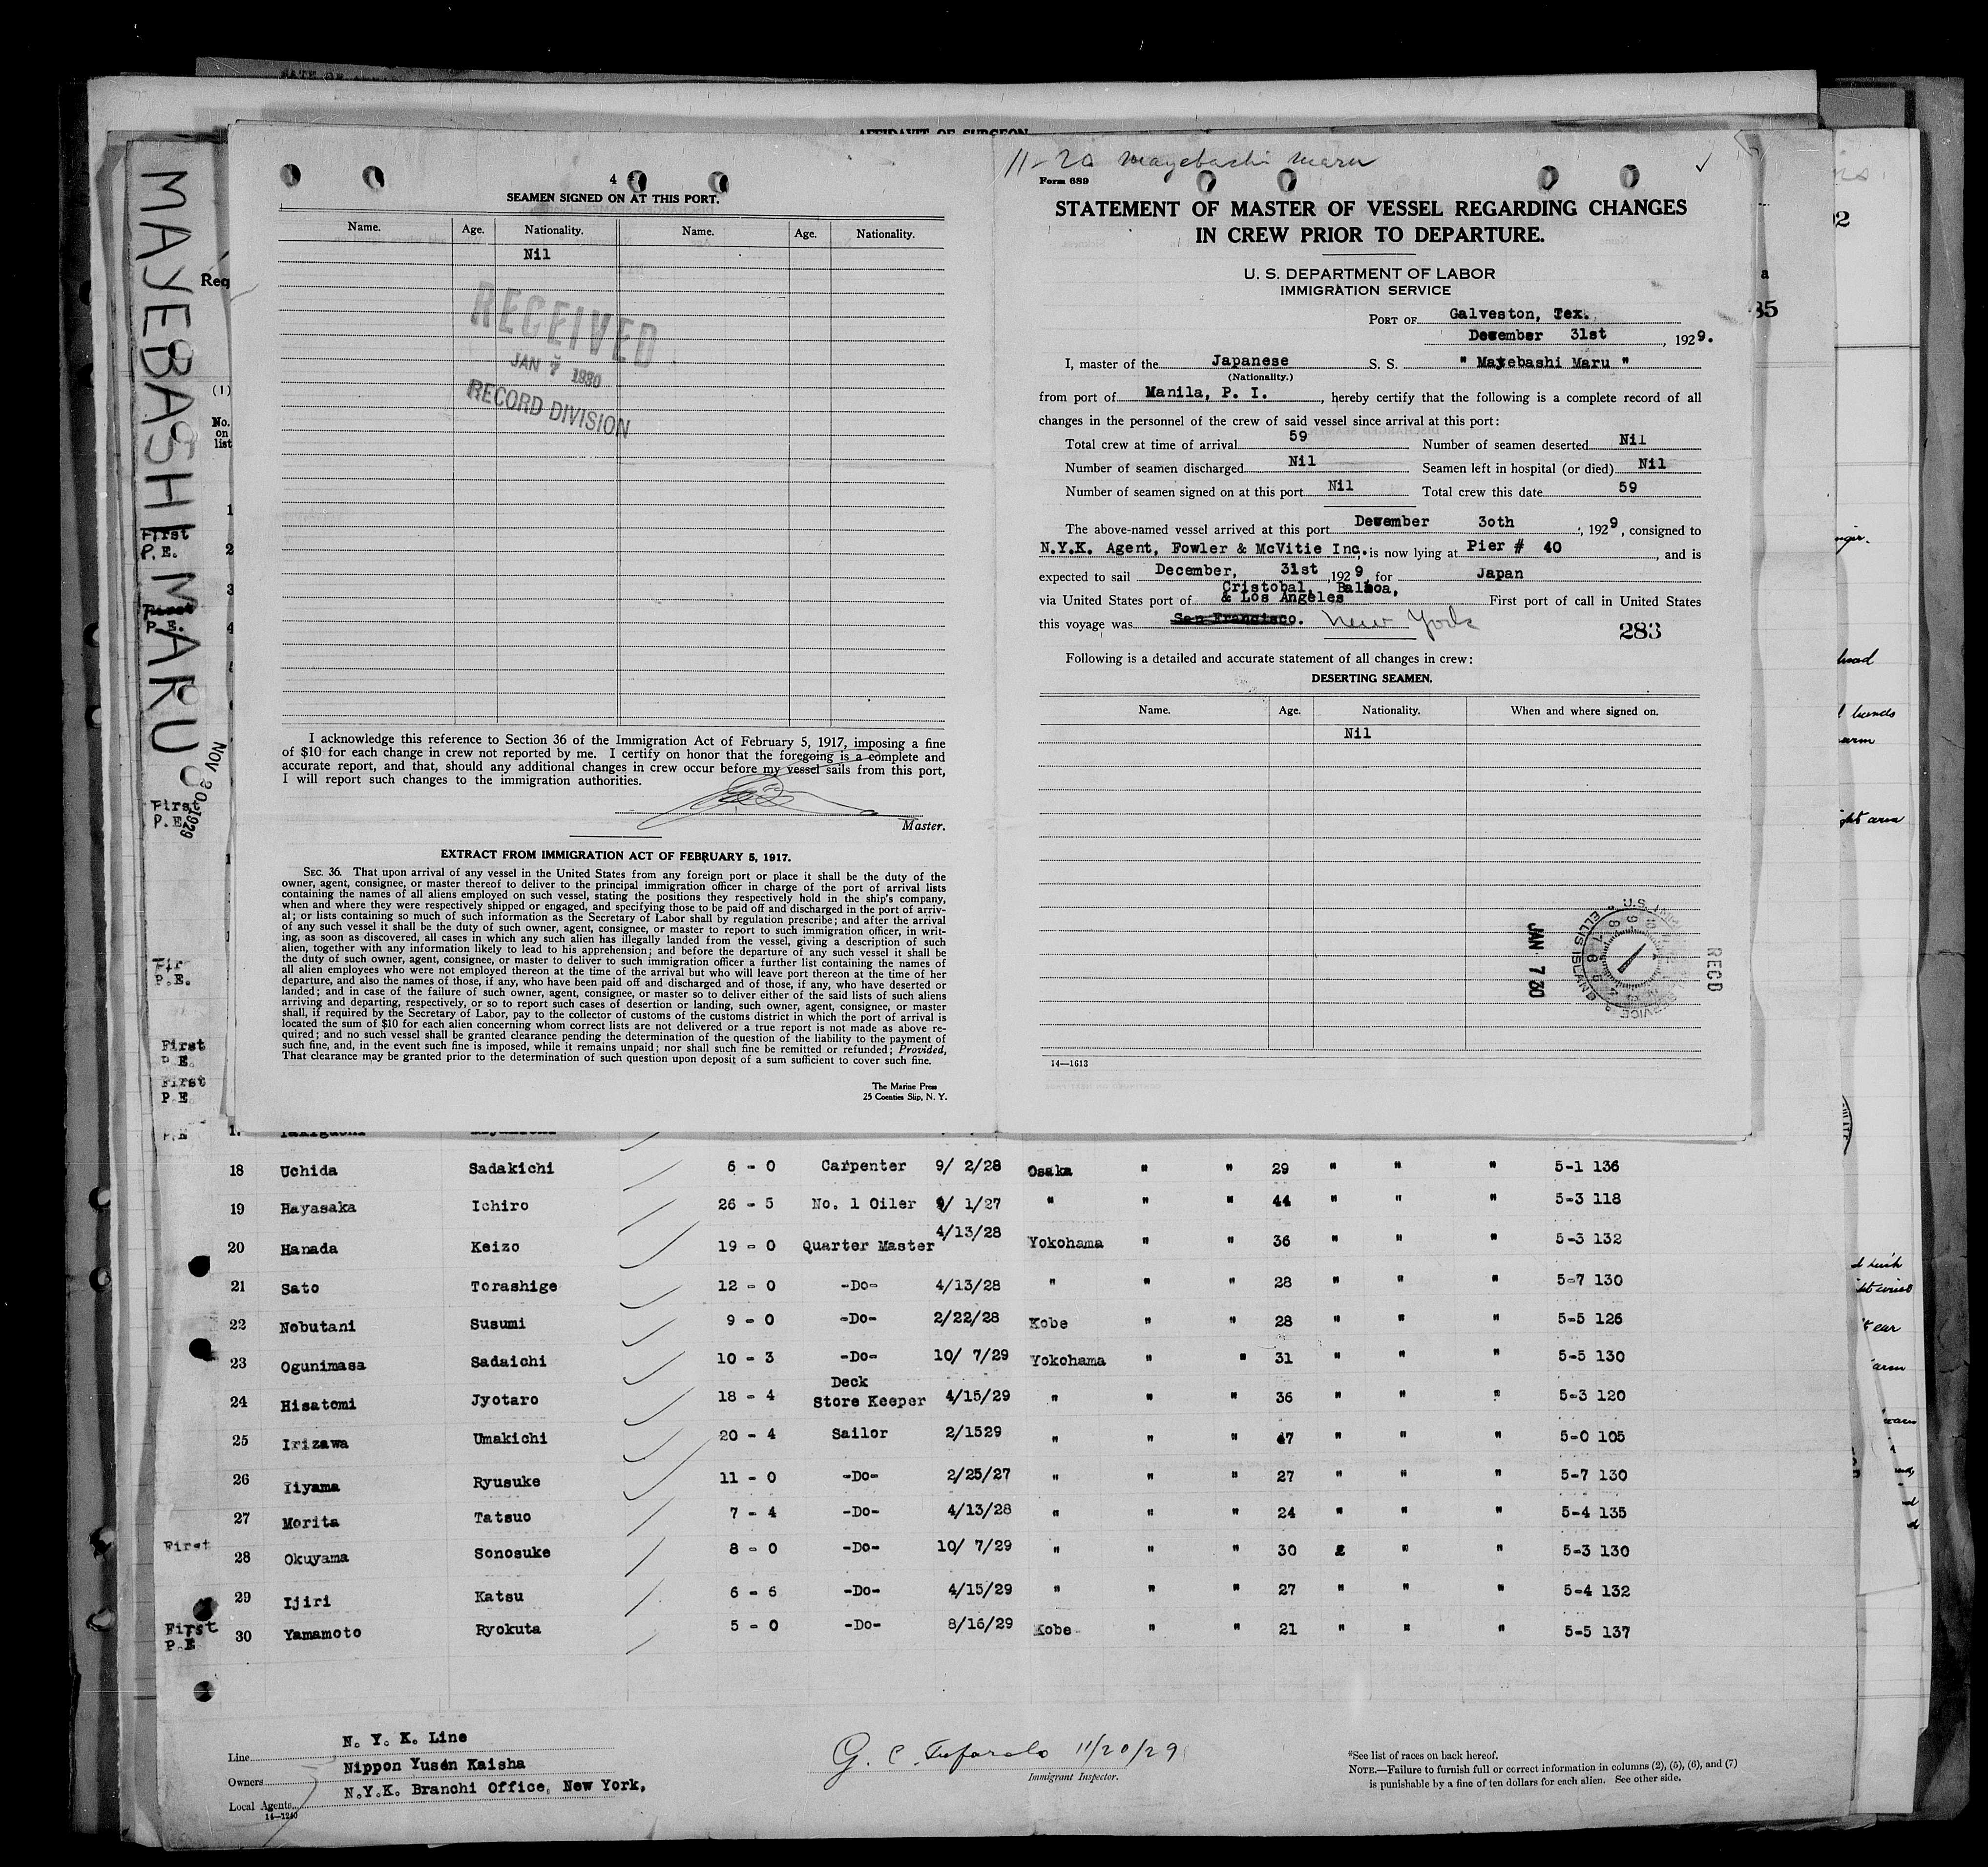 AFFIDAVIT OF SURGEON
MAYEBASHI MARU
NOV 20 1929
Req
(1)
No.
on
list
1
First
P.E.
2
3
First
P.E.
4
First
P.E.
Fir
P.E.
First
P.E.
First
P.E
P.E
4
SEAMEN SIGNED ON AT THIS PORT.
Name. Age. Nationality. Name. Age. Nationality.
Nil
RECEIVED
JAN 7 1930
RECORD DIVISION
I acknowledge this reference to Section 36 of the Immigration Act of February 5, 1917, imposing a fine
of $10 for each change in crew not reported by me. I certify on honor that the foregoing is a complete and
accurate report, and that, should any additional changes in crew occur before my vessel sails from this port,
I will report such changes to the immigration authorities.
Master.
EXTRACT FROM IMMIGRATION ACT OF FEBRUARY 5, 1917.
SEC. 36. That upon arrival of any vessel in the United States from any foreign port or place it shall be the duty of the
owner, agent, consignee, or master thereof to deliver to the principal immigration officer in charge of the port of arrival lists
containing the names of all aliens employed on such vessel, stating the positions they respectively hold in the ship's company,
when and where they were respectively shipped or engaged, and specifying those to be paid off and discharged in the port of arriv-
al; or lists containing so much of such information as the Secretary of Labor shall by regulation prescribe; and after the arrival
of any such vessel it shall be the duty of such owner, agent, consignee, or master to report to such immigration officer, in writ-
ing, as soon as discovered, all cases in which any such alien has illegally landed from the vessel, giving a description of such
alien, together with any information likely to lead to his apprehension; and before the departure of any such vessel it shall be
the duty of such owner, agent, consignee, or master to deliver to such immigration officer a further list containing the names of
all alien employees who were not employed thereon at the time of the arrival but who will leave port thereon at the time of her
departure, and also the names of those, if any, who have been paid off and discharged and of those, if any, who have deserted or
landed; and in case of the failure of such owner, agent, consignee, or master so to deliver either of the said lists of such aliens
arriving and departing, respectively, or so to report such cases of desertion or landing, such owner, agent, consignee, or master
shall, if required by the Secretary of Labor, pay to the collector of customs of the customs district in which the port of arrival is
located the sum of $10 for each alien concerning whom correct lists are not delivered or a true report is not made as above re-
quired; and no such vessel shall be granted clearance pending the determination of the question of the liability to the payment of
such fine, and, in the event such fine is imposed, while it remains unpaid; nor shall such fine be remitted or refunded; Provided,
That clearance may be granted prior to the determination of such question upon deposit of a sum sufficient to cover such fine.
The Marine Press
25 Coenties Slip, N. Y.
11-20 Mayebachi Maru
Form 689
STATEMENT OF MASTER OF VESSEL REGARDING CHANGES
IN CREW PRIOR TO DEPARTURE.
U. S. DEPARTMENT OF LABOR
IMMIGRATION SERVICE
PORT OF Galveston, Tex.
December 31st, 1929.
I, master of the Japanese S. S. " Mayebashi Maru "
(Nationality.)
from port of Manila, P. I., hereby certify that the following is a complete record of all
changes in the personnel of the crew of said vessel since arrival at this port:
Total crew at time of arrival 59 Number of seamen deserted Nil
Number of seamen discharged Nil Seamen left in hospital (or died) Nil
Number of seamen signed on at this port Nil Total crew this date 59
The above-named vessel arrived at this port December 3oth, 1929, consigned to
N.Y.K. Agent, Fowler & McVitie Inc. is now lying at Pier # 40, and is
expected to sail December, 31st, 1929, for Japan
Cristobal, Balboa,
via United States port of & Los Angeles First port of call in United States
this voyage was San Francisco. New York
283
Following is a detailed and accurate statement of all changes in crew:
DESERTING SEAMEN.
Name. Age. Nationality. When and where signed on.
Nil
JAN 7 30
RECD
U.S. IMMIGRATION SERVICE ELLIS ISLAND N.Y.
14—1613
18 Uchida Sadakichi 6 - 0 Carpenter 9/ 2/28 Osaka " " 29 " " " 5-1 136
19 Hayasaka Ichiro 26 - 5 No. 1 Oiler 9/ 1/27 " " " 44 " " " 5-3 118
20 Hanada Keizo 19 - 0 Quarter Master 4/13/28 Yokohama " " 36 " " " 5-3 132
21 Sato Torashige 12 - 0 -Do- 4/13/28 " " " 28 " " " 5-7 130
22 Nobutani Susumi 9 - 0 -Do- 2/22/28 Kobe " " 28 " " " 5-5 126
23 Ogunimasa Sadaichi 10 - 3 -Do- 10/ 7/29 Yokohama " " 31 " " " 5-5 130
24 Hisatomi Jyotaro 18 - 4 Deck Store Keeper 4/15/29 " " " 36 " " " 5-3 120
25 Irizawa Umakichi 20 - 4 Sailor 2/1529 " " " 47 " " " 5-0 105
26 Iiyama Ryusuke 11 - 0 -Do- 2/25/27 " " " 27 " " " 5-7 130
27 Morita Tatsuo 7 - 4 -Do- 4/13/28 " " " 24 " " " 5-4 135
First 28 Okuyama Sonosuke 8 - 0 -Do- 10/ 7/29 " " " 30 " " " 5-3 130
29 Ijiri Katsu 6 - 6 -Do- 4/15/29 " " " 27 " " " 5-4 132
First P.E 30 Yamamoto Ryokuta 5 - 0 -Do- 8/16/29 Kobe " " 21 " " " 5-5 137
Line N. Y. K. Line
Owners Nippon Yusen Kaisha
Local Agents N.Y.K. Branchi Office, New York,
14—1240
11/20/29
Immigrant Inspector.
*See list of races on back hereof.
NOTE.—Failure to furnish full or correct information in columns (2), (5), (6), and (7)
is punishable by a fine of ten dollars for each alien. See other side.